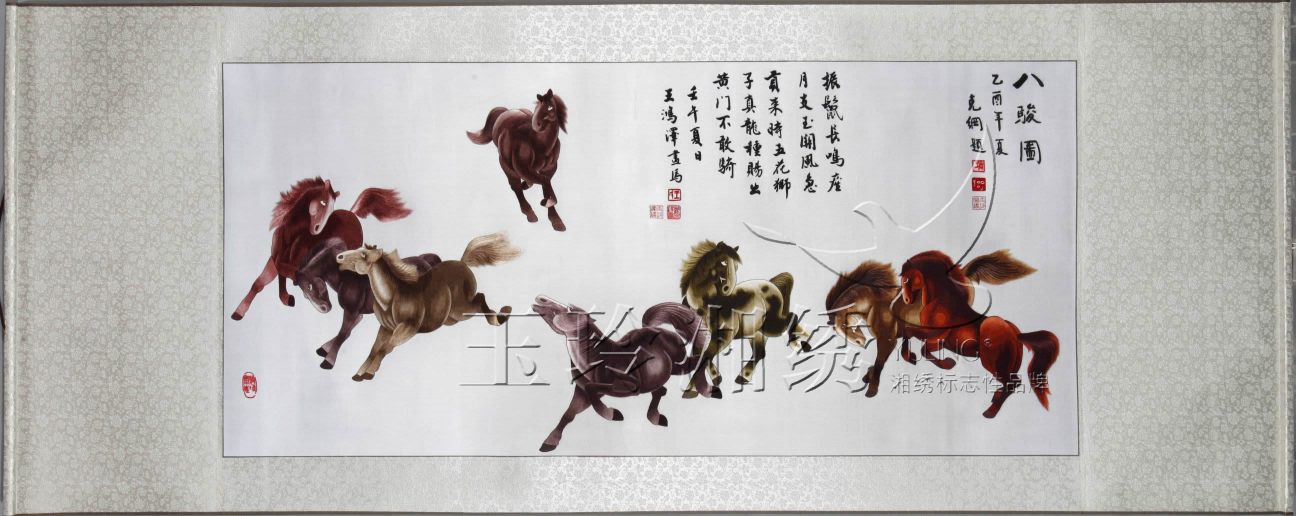 八駿圖
乙酉年夏
克綱題
振鬣長鳴產
月支玉關風急
貢来時五花獅
子真龍種賜出
黄门不敢騎
壬午夏日
王鴻澤畫馬
玉玲湘绣
湘绣标志性品牌